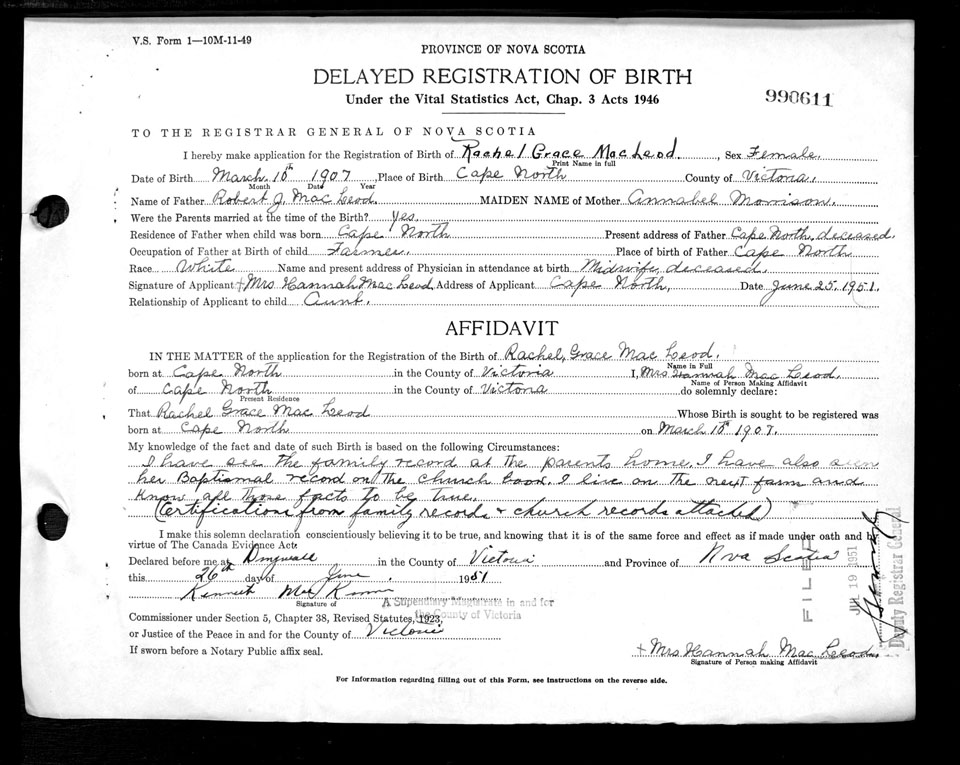 V.S. Form 1—10M-11-49
PROVINCE OF NOVA SCOTIA
DELAYED REGISTRATION OF BIRTH
Under the Vital Statistics Act, Chap. 3 Acts 1946
990611
TO THE REGISTRAR GENERAL OF NOVA SCOTIA
I hereby make application for the Registration of Birth of Rachel Grace MacLeod. , Sex Female.
Print Name in full
Date of Birth March 10th 1907, Place of Birth Cape North County of Victoria.
Month Date Year
Name of Father Robert J. MacLeod. MAIDEN NAME of Mother Annabel Morrison.
Were the Parents married at the time of the Birth? Yes.
Residence of Father when child was born Cape North Present address of Father Cape North, deceased.
Occupation of Father at Birth of child Farmer. Place of birth of Father Cape North
Race White Name and present address of Physician in attendance at birth Midwife, deceased.
Signature of Applicant + Mrs Hannah MacLeod, Address of Applicant Cape North, Date June 25, 1951.
Relationship of Applicant to child Aunt.
AFFIDAVIT
IN THE MATTER of the application for the Registration of the Birth of Rachel, Grace MacLeod.
Name in Full
born at Cape North in the County of Victoria I, Mrs Hannah MacLeod.
Name of Person Making Affidavit
of Cape North in the County of Victoria do solemnly declare:
Present Residence
That Rachel Grace MacLeod Whose Birth is sought to be registered was
born at Cape North on March 10th 1907.
My knowledge of the fact and date of such Birth is based on the following Circumstances:
I have see the family record at the parents home. I have also seen
her Baptismal record on the church book. I live on the next farm and
know all those facts to be true.
(Certifications from family records & church records attached)
I make this solemn declaration conscientiously believing it to be true, and knowing that it is of the same force and effect as if made under oath and by
virtue of The Canada Evidence Act.
Declared before me at Dingwall in the County of Victoria and Province of Nova Scotia
this 26th day of June, 1951
Kenneth Mac
Signature of A Stipendiary Magistrate in and for
the County of Victoria
Commissioner under Section 5, Chapter 38, Revised Statutes, 1923,
or Justice of the Peace in and for the County of Victoria
If sworn before a Notary Public affix seal.
+ Mrs Hannah MacLeod.
Signature of Person making Affidavit
For Information regarding filling out of this Form, see Instructions on the reverse side.
FILED
19 1951
Deputy Registrar General